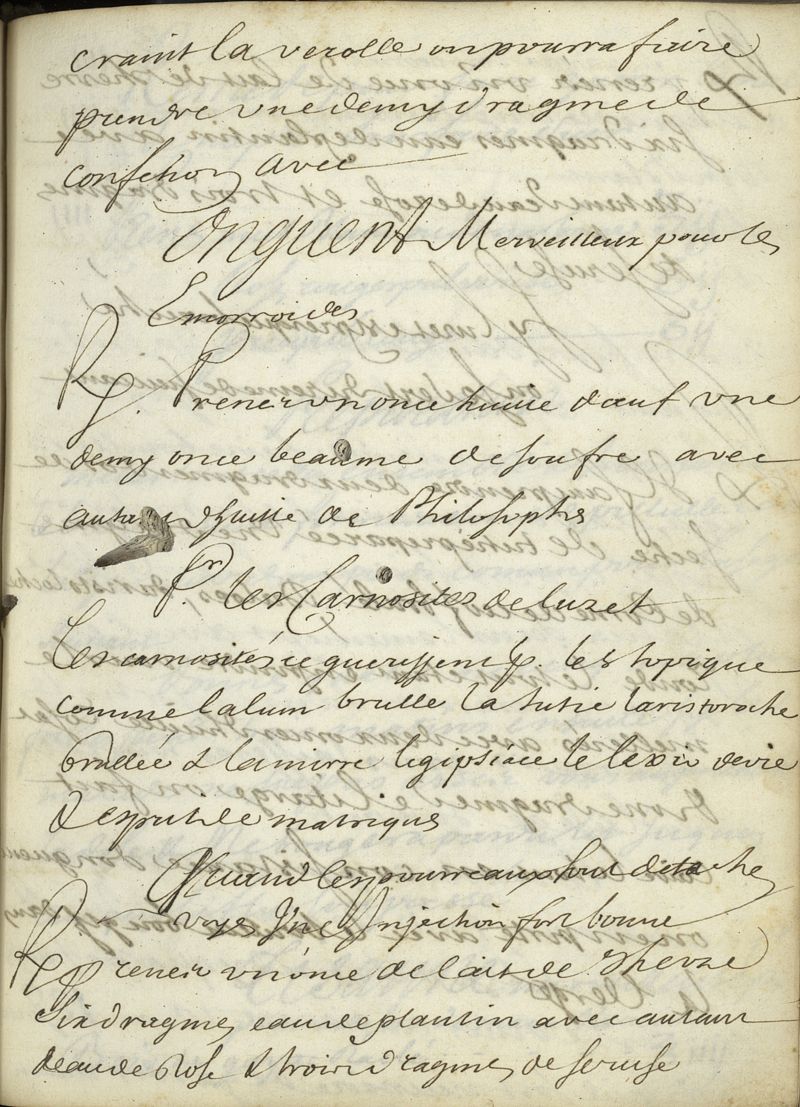 craint la verolle on pourra faire
prendre vne demy dragme de
confection avec
Onguent Merveilleux pour les
Emorroides
Rx. Prener vn once huille d'oeuf vne
demy once beaume de soufre avec
autant d'huille de Philosophe
Pr. les Carnosites de luret
Les carnosités ce guerissent p. les topique
comme lalum brulle la tutie laristoroche
brullée & lamirre legipsiace le lexir de vie
Lesprit de matriques
Quand les pourreaux sont detache
voyé Vne Injection fort bonne
Rx prener vn once de lait de Chevre
six dragmes eau de plantin avec autant
deau de Rose & trois dragmes de seruse